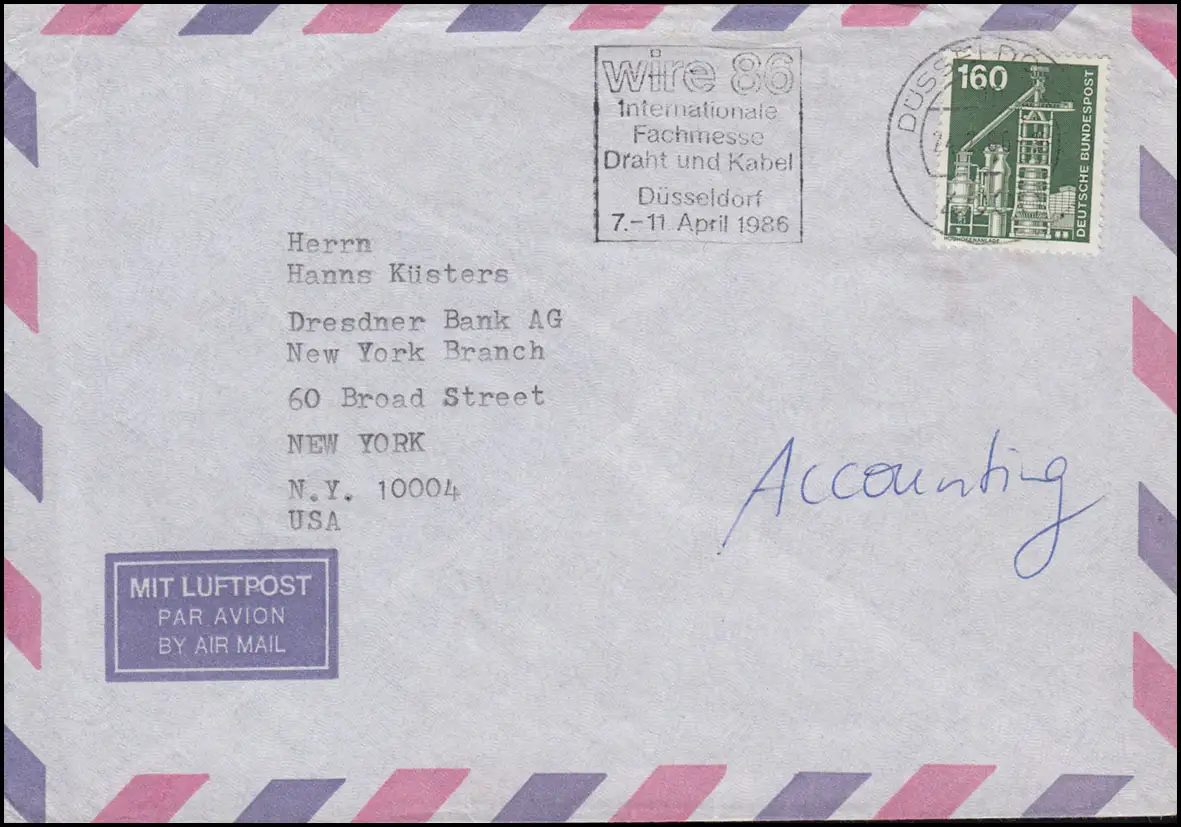 wire 86
Internationale
Fachmesse
Draht und Kabel
Düsseldorf
7.-11. April 1986
160
DEUTSCHE BUNDESPOST
HOCHOFENANLAGE
Herrn
Hanns Küsters
Dresdner Bank AG
New York Branch
60 Broad Street
NEW YORK
N.Y. 10004
USA
Accounting
MIT LUFTPOST
PAR AVION
BY AIR MAIL